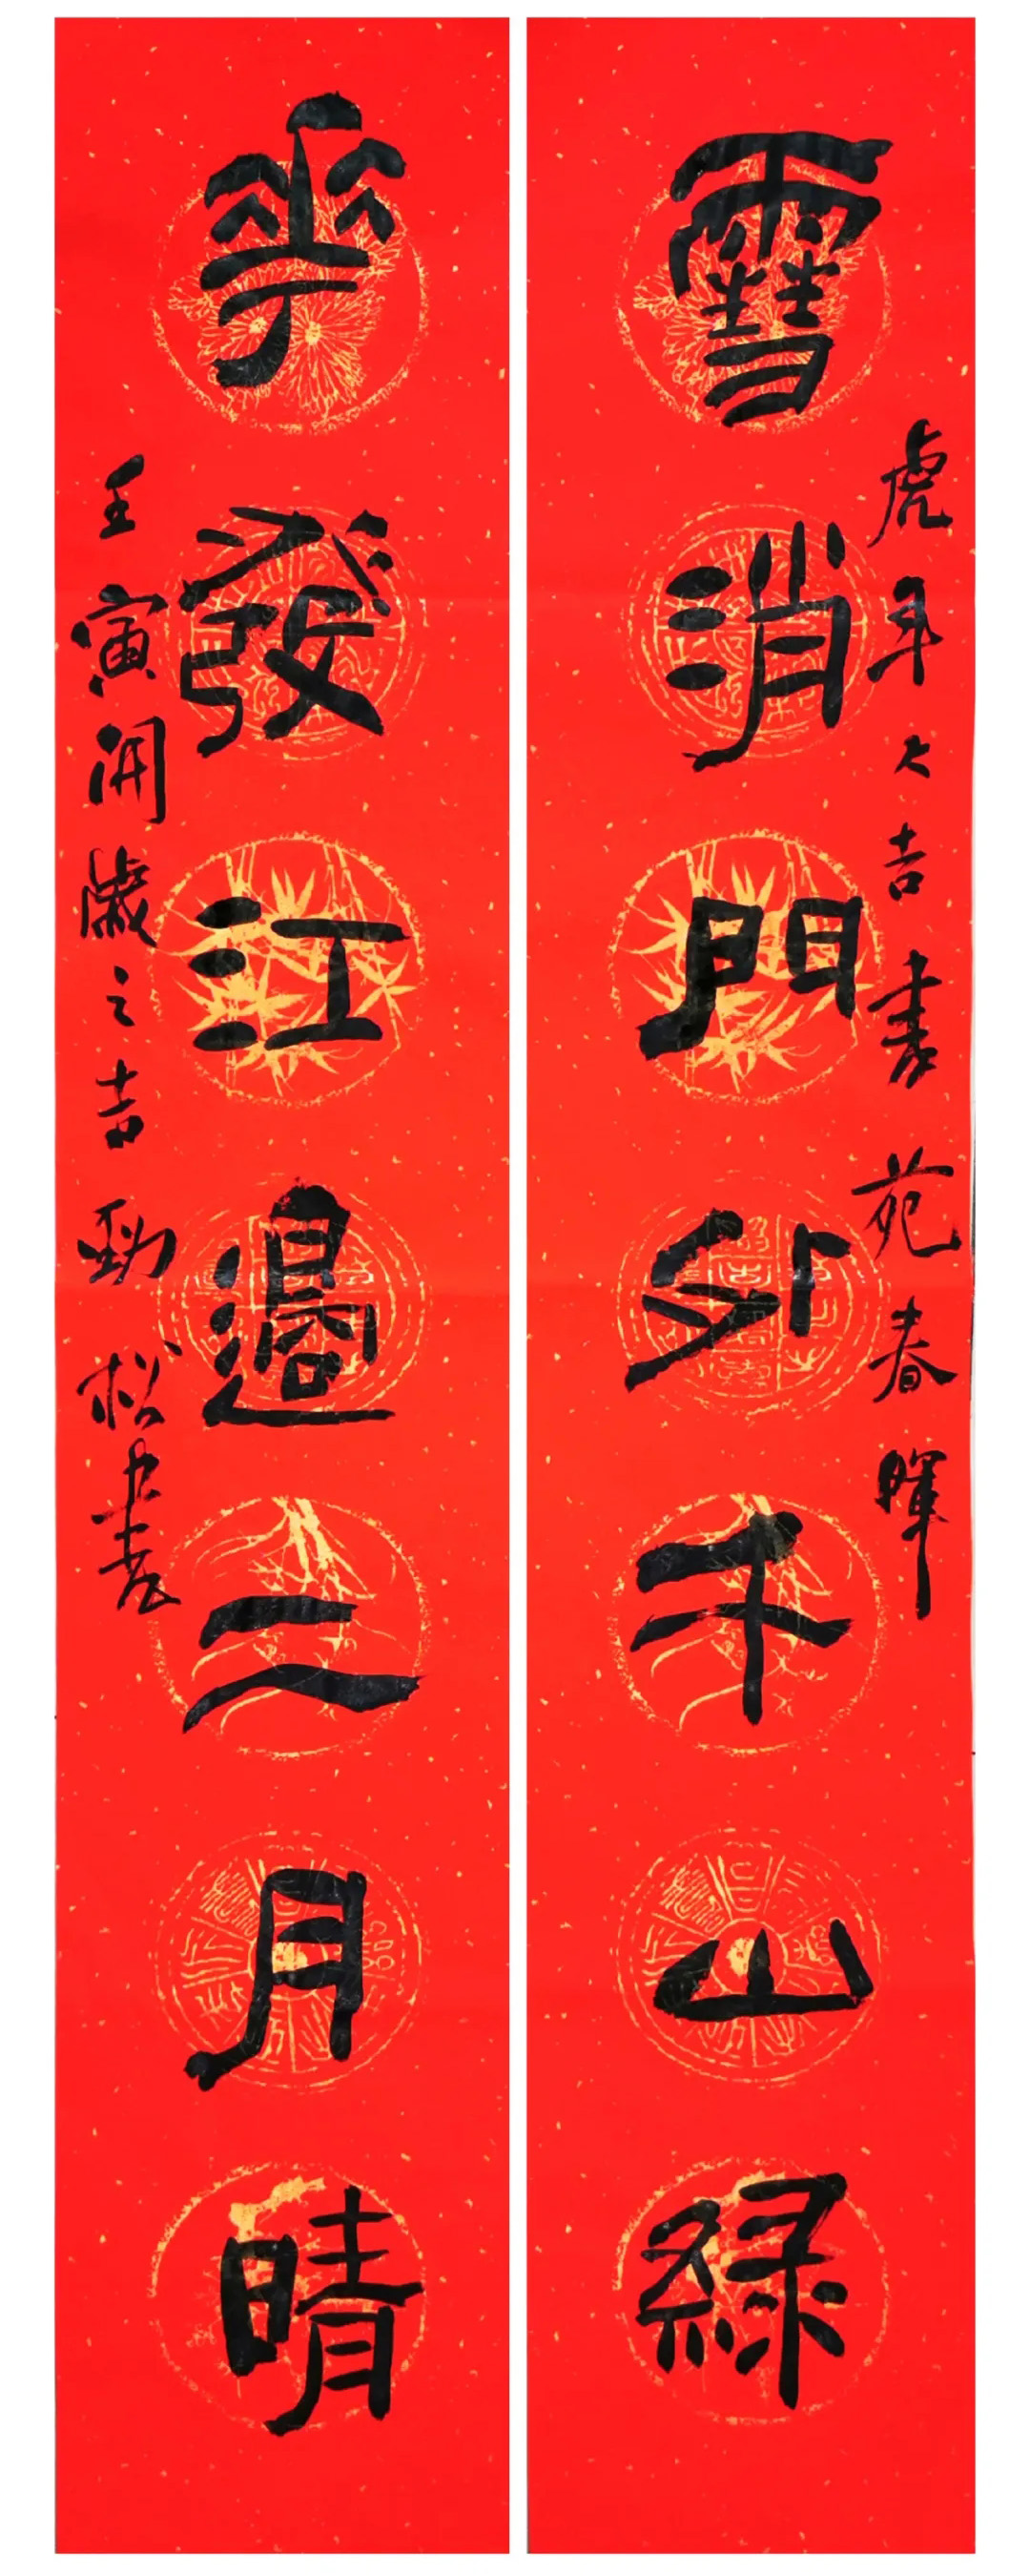 雪消門外千山綠
虎年大吉書苑春暉
華發江邊二月晴
壬寅開歲之吉勁松書